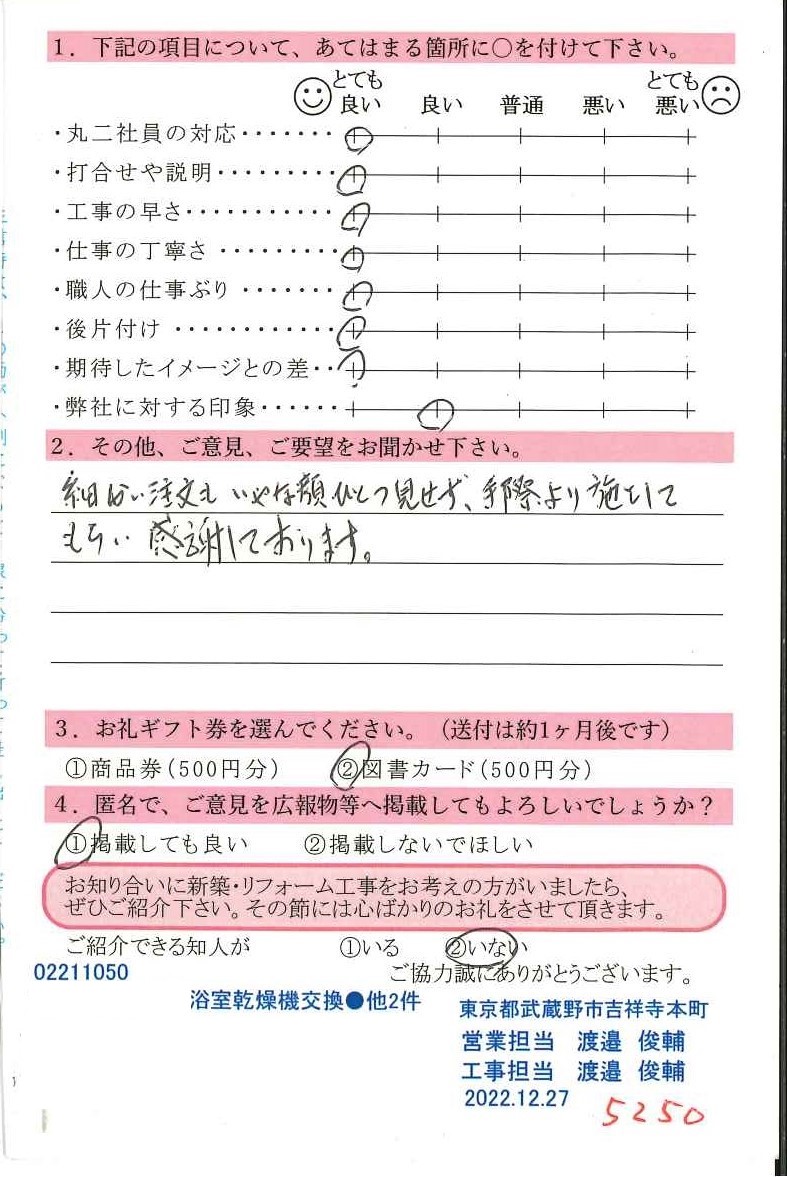 1．下記の項目について、あてはまる箇所に○を付けて下さい。
とても良い 良い 普通 悪い とても悪い
・丸二社員の対応・・・・・・・
・打合せや説明・・・・・・・・・
・工事の早さ・・・・・・・・・・・
・仕事の丁寧さ ・・・・・・・・・
・職人の仕事ぶり ・・・・・・・
・後片付け ・・・・・・・・・・・・
・期待したイメージとの差・・
・弊社に対する印象・・・・・・
2．その他、ご意見、ご要望をお聞かせ下さい。
細かい注文も いやな顔ひとつ見せず、手際より施工して
もらい 感謝しております。
3．お礼ギフト券を選んでください。（送付は約1ヶ月後です）
①商品券（500円分） ②図書カード（500円分）
4．匿名で、ご意見を広報物等へ掲載してもよろしいでしょうか？
①掲載しても良い ②掲載しないでほしい
お知り合いに新築・リフォーム工事をお考えの方がいましたら、
ぜひご紹介下さい。その節には心ばかりのお礼をさせて頂きます。
ご紹介できる知人が ①いる ②いない
02211050 ご協力誠にありがとうございます。
浴室乾燥機交換●他2件 東京都武蔵野市吉祥寺本町
営業担当 渡邉 俊輔
工事担当 渡邉 俊輔
2022.12.27
5250